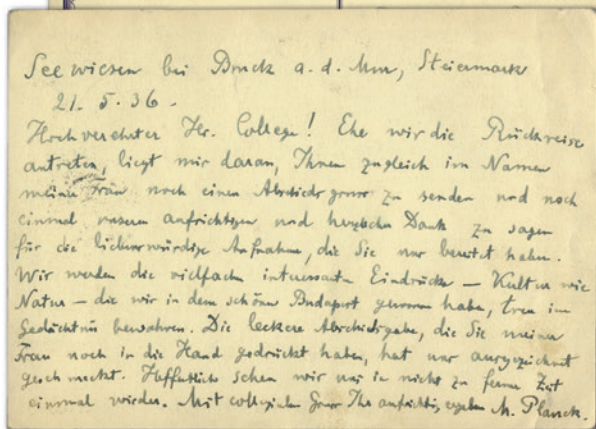 Seewiesen bei Bruck a. d. Mur, Steiermark
21. 5. 36.
Hochverehrter Hr. College! Ehe wir die Rückreise
antreten, liegt mir daran, Ihnen zugleich im Namen
meiner Frau noch einen Abschiedsgruss zu senden und noch
einmal unseren aufrichtigen und herzlichen Dank zu sagen
für die liebenswürdige Aufnahme, die Sie uns bereitet haben.
Wir werden die vielfachen interessanten Eindrücke — Kultur wie
Natur — die wir in dem schönen Budapest gewonnen haben, treu im
Gedächtnis bewahren. Die leckere Abschiedsgabe, die Sie meiner
Frau noch in die Hand gedrückt haben, hat uns ausgezeichnet
geschmeckt. Hoffentlich sehen wir uns in nicht zu ferner Zeit
einmal wieder. Mit collegialem Gruss Ihr aufrichtig ergebener M. Planck.